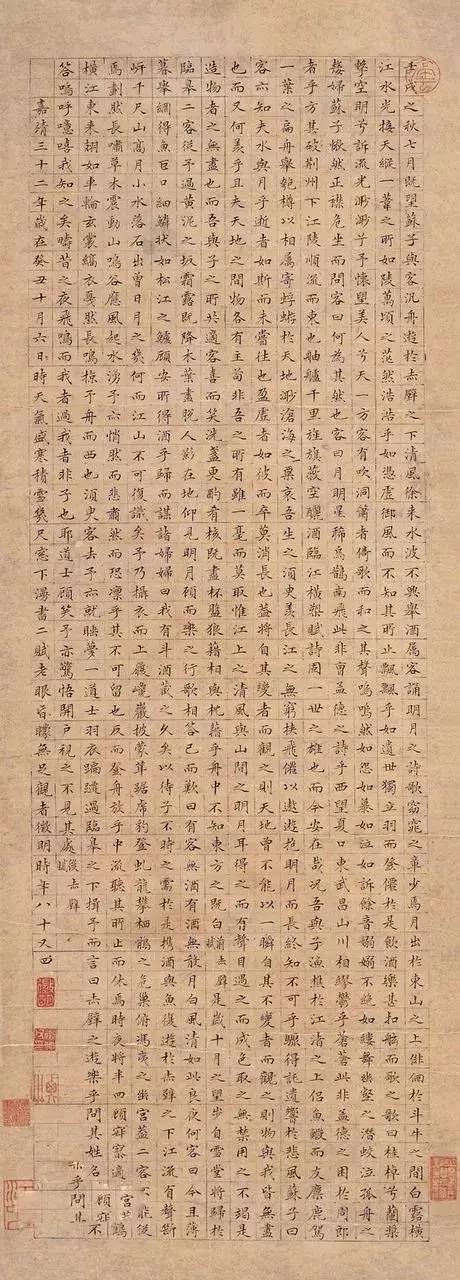 壬戌之秋七月既望蘇子與客汎舟遊於赤壁之下清風徐來水波不興舉酒属客誦明月之詩歌窈窕之章少焉月出於東山之上徘徊於斗牛之間白露橫
江水光接天縱一葦之所如陵萬頃之茫然浩浩乎如憑虛御風而不知其所止飄飄乎如遺世獨立羽而登僊於是飲酒樂甚扣舷而歌之歌曰桂棹兮蘭槳
擊空明兮泝流光渺渺兮予懷望美人兮天一方客有吹洞簫者倚歌而和之其聲嗚嗚然如怨如慕如泣如訴餘音嫋嫋不絕如縷舞幽壑之潛蛟泣孤舟之
嫠婦蘇子愀然正襟危坐而問客曰何為其然也客曰月明星稀烏鵲南飛此非曹孟德之詩乎西望夏口東武昌山川相繆鬱乎蒼蒼此非孟德之困於周郎
者乎方其破荊州下江陵順流而東也舳艫千里旌旗蔽空釃酒臨江橫槊賦詩固一世之雄也而今安在哉況吾與子漁樵於江渚之上侶魚鰕而友麋鹿駕
一葉之扁舟舉匏樽以相屬寄蜉蝣於天地渺滄海之粟哀吾生之須臾羨長江之無窮挾飛僊以遨遊抱明月而長終知不可乎驟得託遺響於悲風蘇子曰
客亦知夫水與月乎逝者如斯而未嘗往也盈虛者如彼而卒莫消長也蓋將自其變者而觀之則天地曾不能以一瞬自其不變者而觀之則物與我皆無盡
也而又何羨乎且夫天地之間物各有主苟非吾之所有雖一毫而莫取惟江上之清風與山間之明月耳得之而有聲目遇之而成色取之無禁用之不竭是
造物者之無盡也而吾與子之所共適客喜而笑洗盞更酌肴核既盡杯盤狼籍相與枕藉乎舟中不知東方之既白前赤壁賦是歲十月之望步自雪堂將歸於
臨臯二客從予過黃泥之坂霜露既降木葉盡脫人影在地仰見明月顧而樂之行歌相答已而歎曰有客無酒有酒無肴月白風清如此良夜何客曰今且薄
暮舉網得魚巨口細鱗狀如松江之鱸顧安所得酒乎歸而謀諸婦婦曰我有斗酒藏之久矣以待子不時之需於是携酒與魚復遊於赤壁之下江流有聲斷
岍千尺山高月小水落石出曾日月之幾何而江山不可復識矣予乃攝衣而上履巉巖披蒙茸踞虎豹登虬龍攀栖鶻之危巢俯馮夷之幽宮蓋二客不能從
焉劃然長嘯草木震動山鳴谷應風起水湧予亦悄然而悲肅然而恐凛乎其不可留也反而登舟放乎中流聽其所止而休焉時夜將半四顧寂寥適
橫江東來翅如車輪玄裳縞衣戞然長鳴掠予舟而西也須臾客去予亦就睡夢一道士羽衣蹁躚過臨臯之下揖予而言曰赤壁之遊樂乎問其姓名
答嗚呼噫嘻我知之矣疇昔之夜飛鳴而過我者非子也耶道士顧笑予亦驚悟開戶視之不見其處後赤壁賦
嘉靖三十二年歲在癸丑十月六日時天氣盛寒積雪幾尺窓下漫書二賦老眼昏矇無足觀者徵明時年八十又四